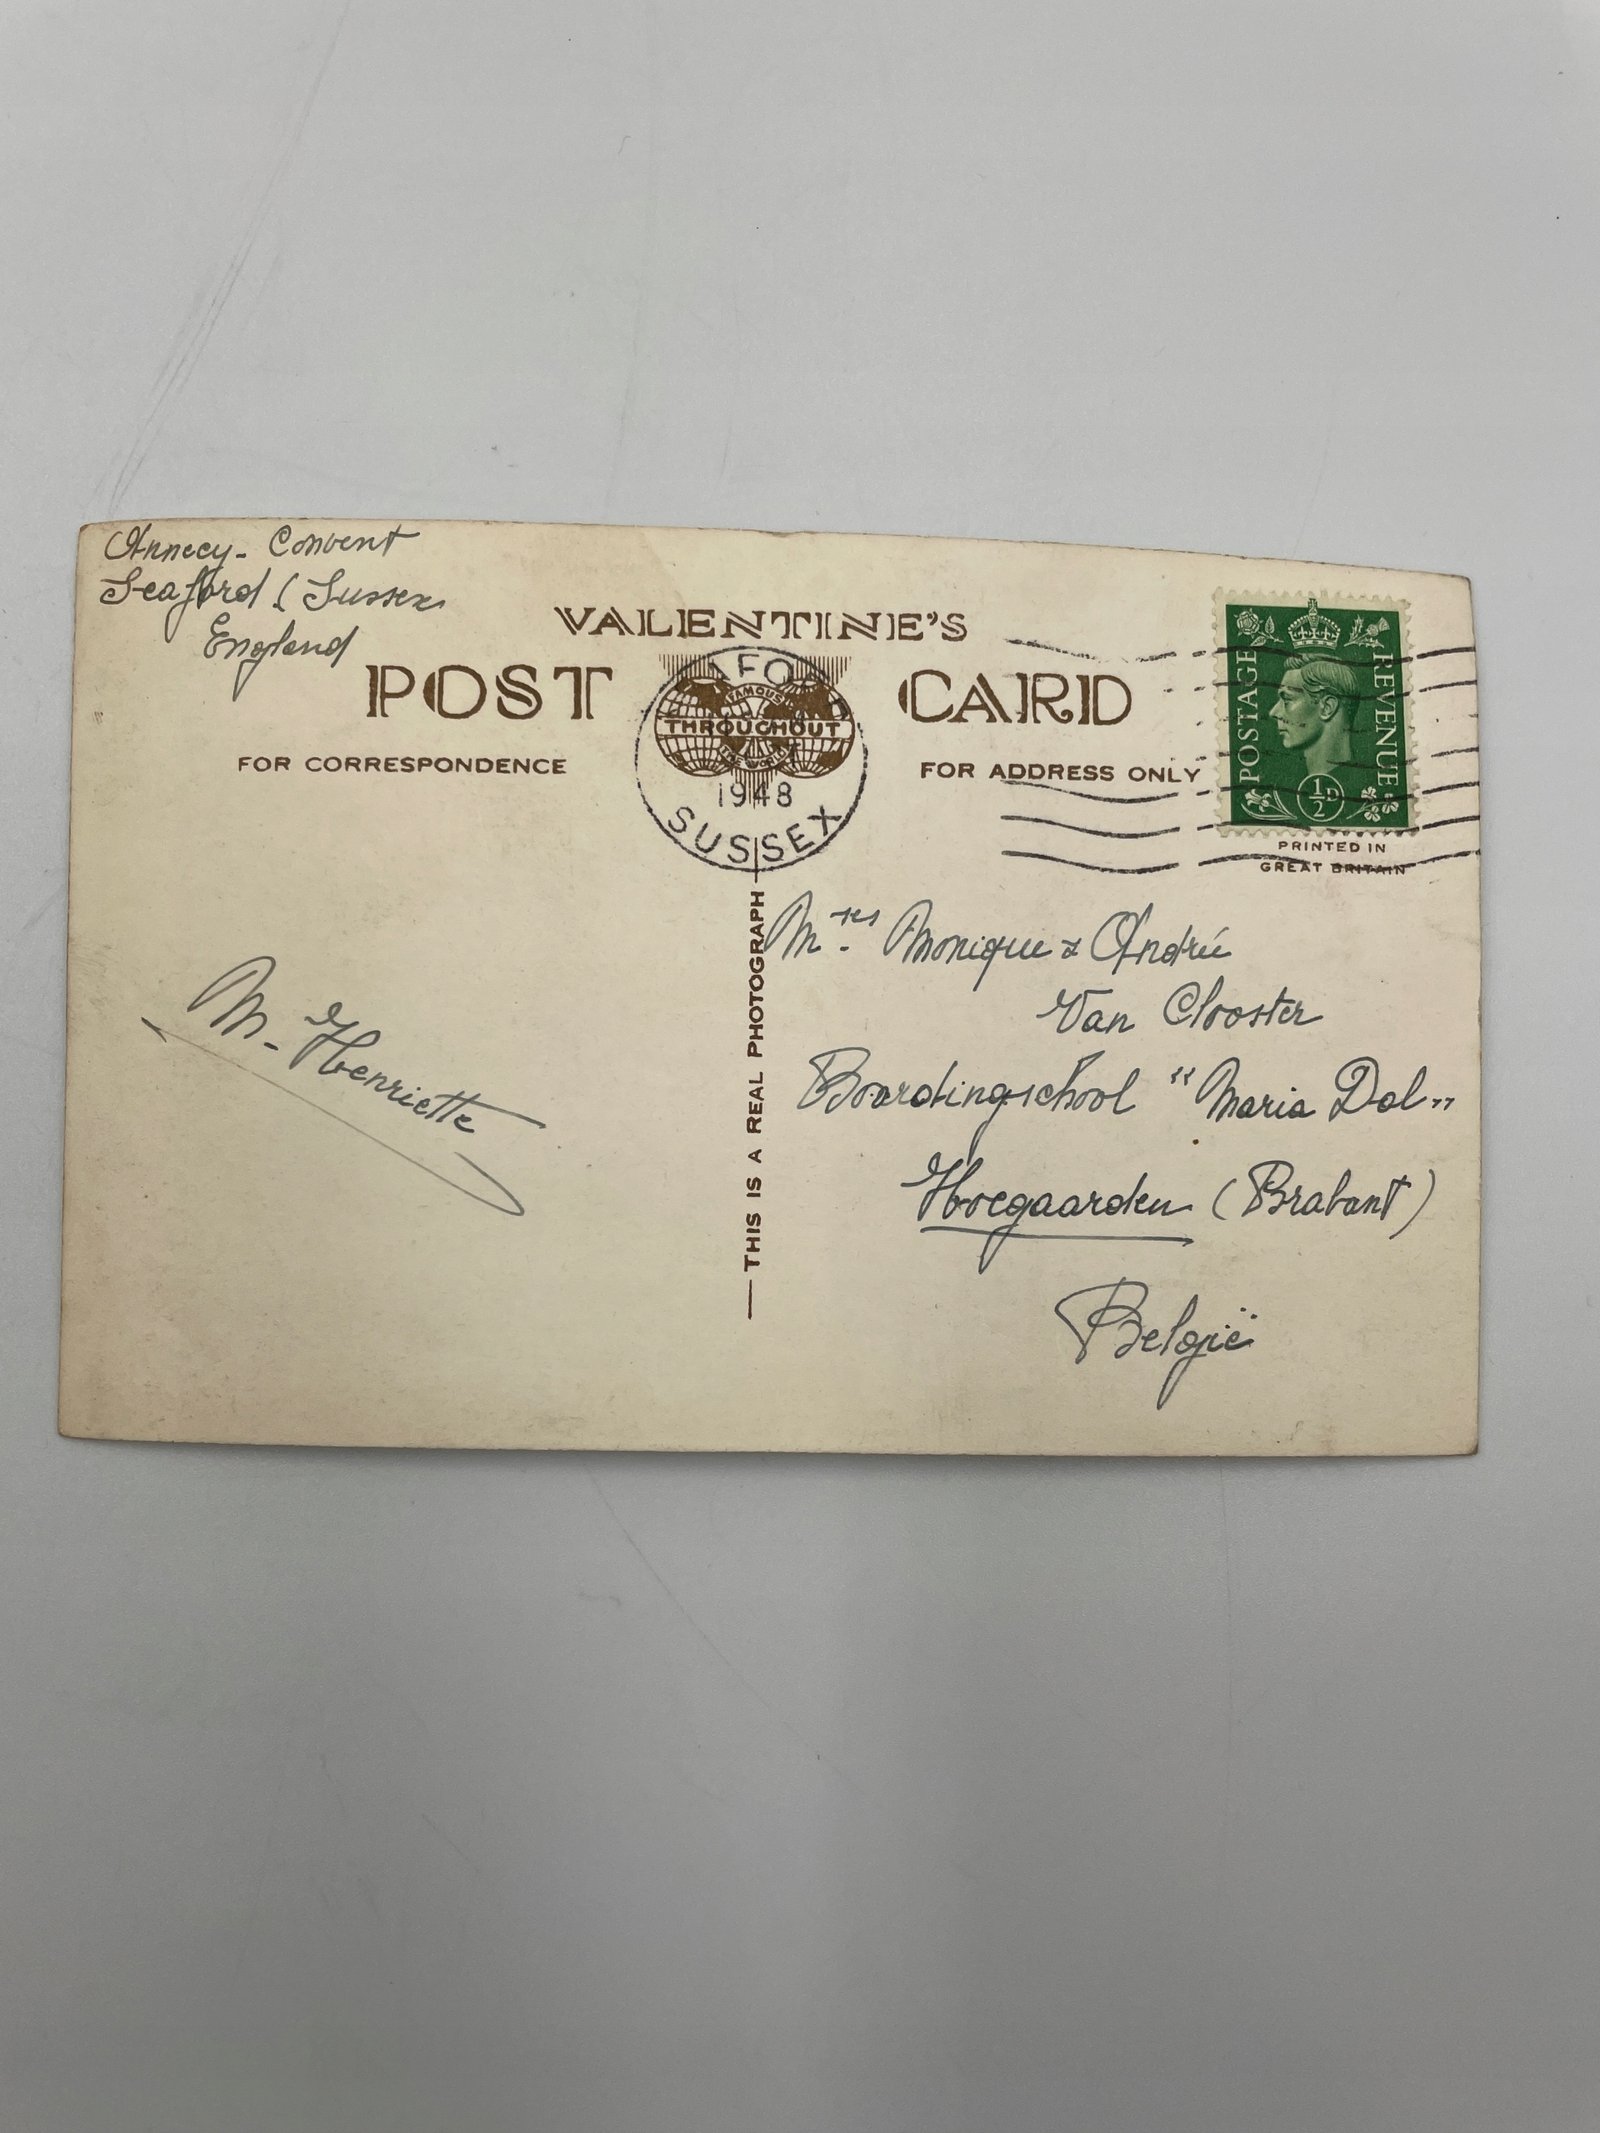 Annecy- Convent
Seaford. (Sussex
England
VALENTINE'S
POST CARD
FAMOUS
THROUGHOUT
THE WORLD
FOR CORRESPONDENCE
FOR ADDRESS ONLY
1948
SUSSEX
POSTAGE
REVENUE
½D
PRINTED IN
GREAT BRITAIN
THIS IS A REAL PHOTOGRAPH
M. Henriette
M. Monique & Andrée
Van Clooster
Boardingschool "Maria Dal"
Hoegaarden (Brabant)
België